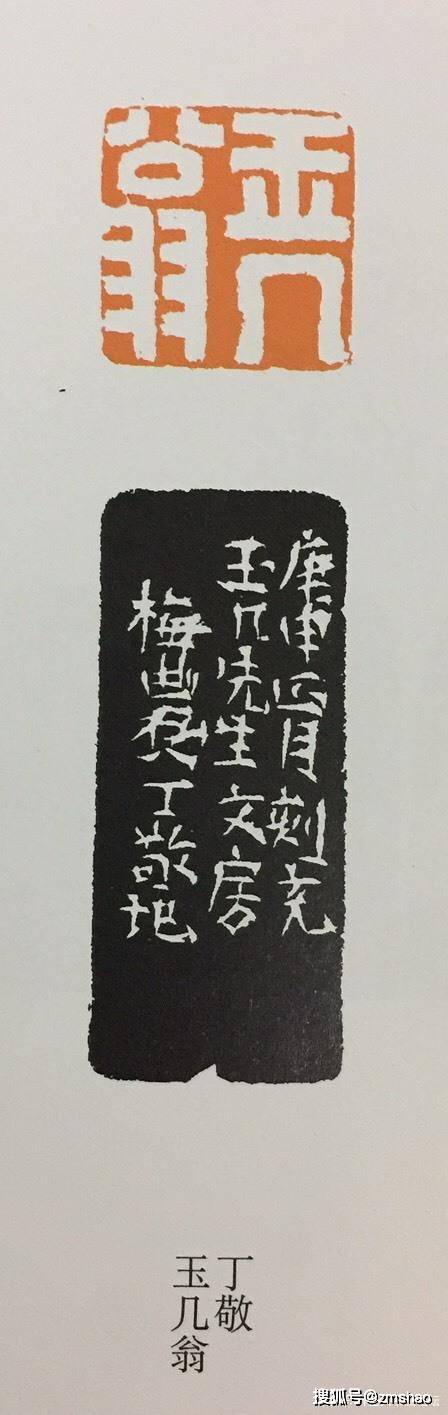 玉几
翁
庚申正月刻充
玉几先生文房
梅農丁敬
丁敬
玉几翁
搜狐号@zmshao